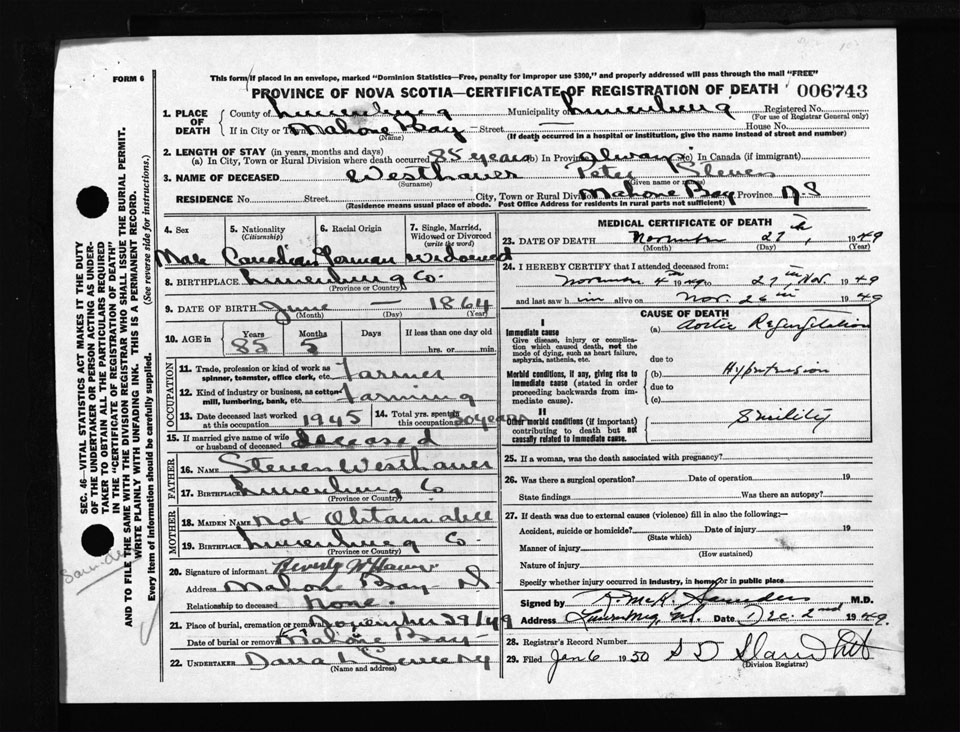 FORM 6
This form if placed in an envelope, marked "Dominion Statistics—Free, penalty for improper use $300," and properly addressed will pass through the mail "FREE"
PROVINCE OF NOVA SCOTIA—CERTIFICATE OF REGISTRATION OF DEATH 006743
1. PLACE OF DEATH
County of Lunenburg Municipality of Lunenburg Registered No.
(For use of Registrar General only)
If in City or Town Mahone Bay Street House No.
(Name) (If death occurred in a hospital or institution, give the name instead of street and number)
2. LENGTH OF STAY (in years, months and days)
(a) In City, Town or Rural Division where death occurred 85 years (b) In Province Always (c) In Canada (if immigrant)
3. NAME OF DECEASED Westhaver Peter Steven
(Surname) (Given name or names)
RESIDENCE No. Street City, Town or Rural Division Mahone Bay Province N.S
(Residence means usual place of abode. Post Office Address for residents in rural parts not sufficient)
4. Sex 5. Nationality (Citizenship) 6. Racial Origin 7. Single, Married, Widowed or Divorced (write the word)
Male Canadian German Widowed
8. BIRTHPLACE Lunenburg Co.
(Province or Country)
9. DATE OF BIRTH June 1864
(Month) (Day) (Year)
10. AGE in Years Months Days If less than one day old
85 5 hrs. or min.
OCCUPATION
11. Trade, profession or kind of work as spinner, teamster, office clerk, etc. Farmer
12. Kind of industry or business, as cotton-mill, lumbering, bank, etc. Farming
13. Date deceased last worked at this occupation 1945 14. Total yrs. spent in this occupation 50 years
15. If married give name of wife or husband of deceased deceased
FATHER
16. NAME Steven Westhaver
17. BIRTHPLACE Lunenburg Co
(Province or Country)
MOTHER
18. MAIDEN NAME Not Obtainable
19. BIRTHPLACE Lunenburg Co.
(Province or Country)
20. Signature of informant Beverly
Address Mahone Bay N.S
Relationship to deceased None.
21. Place of burial, cremation or removal November 29/49
Date of burial or removal Mahone Bay
22. UNDERTAKER Dana L Sweeny
(Name and address)
MEDICAL CERTIFICATE OF DEATH
23. DATE OF DEATH November 27th, 1949
(Month) (Day) (Year)
24. I HEREBY CERTIFY that I attended deceased from:
November 4th 1949 to 27th, Nov. 1949
and last saw him alive on Nov. 26th 1949
CAUSE OF DEATH
I
Immediate cause
Give disease, injury or complication which caused death, not the mode of dying, such as heart failure, asphyxia, asthenia, etc.
(a) Aortic Regurgitation
due to
Morbid conditions, if any, giving rise to immediate cause (stated in order proceeding backwards from immediate cause).
(b) Hypertension
due to
(c)
II
Other morbid conditions (if important) contributing to death but not causally related to immediate cause.
Senility
25. If a woman, was the death associated with pregnancy?
26. Was there a surgical operation? Date of operation 19
State findings Was there an autopsy?
27. If death was due to external causes (violence) fill in also the following:—
Accident, suicide or homicide? Date of injury 19
(State which)
Manner of injury
(How sustained)
Nature of injury
Specify whether injury occurred in industry, in home or in public place
Signed by R. McK. Saunders M.D.
Address Date Dec. 2nd 1949.
28. Registrar's Record Number
29. Filed Jan 6 1950 S D
(Division Registrar)
SEC. 46—VITAL STATISTICS ACT MAKES IT THE DUTY
OF THE UNDERTAKER OR PERSON ACTING AS UNDER-
TAKER TO OBTAIN ALL THE PARTICULARS REQUIRED
IN THE "CERTIFICATE OF REGISTRATION OF DEATH"
AND TO FILE THE SAME WITH THE DIVISION REGISTRAR WHO SHALL ISSUE THE BURIAL PERMIT.
WRITE PLAINLY WITH UNFADING INK. THIS IS A PERMANENT RECORD.
Every item of information should be carefully supplied. (See reverse side for instructions.)
Saunders